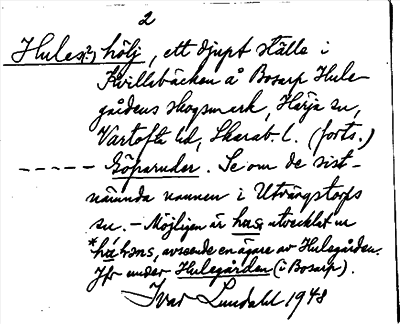 2
Hules(?) hölj, ett djupt ställe i
Kvillebäcken å Bosarp Hule-
gårdens skogsmark, Härja sn,
Vartofta hd, Skarab. l. (forts.)
----- Göparuder. Se om de sist-
nämnda namnen i Utvängstorps
sn. – Möjligen är has utvecklat ur
*há-hons, avseende en ägare av Hulegården.
Jfr under Hulegården (i Bosarp).
Ivar Lundahl 1948